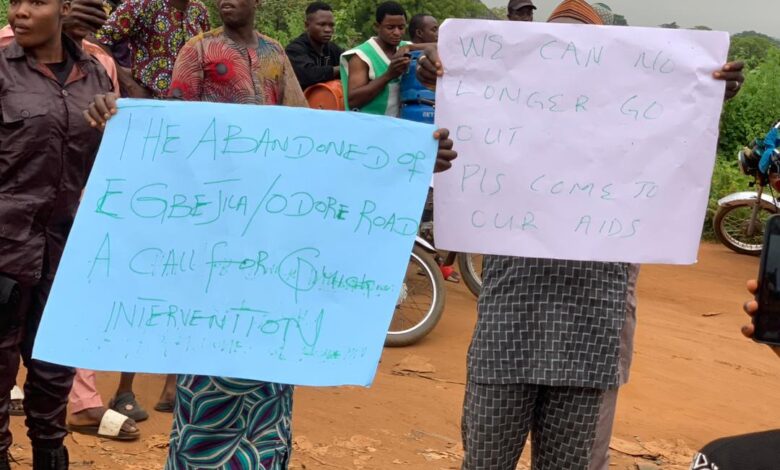 THE ABANDONED OF
EGBEJILA/ODORE ROAD
A CALL FOR QUICK
INTERVENTION
WE CAN NO
LONGER GO
OUT
PLS COME TO
OUR AIDS